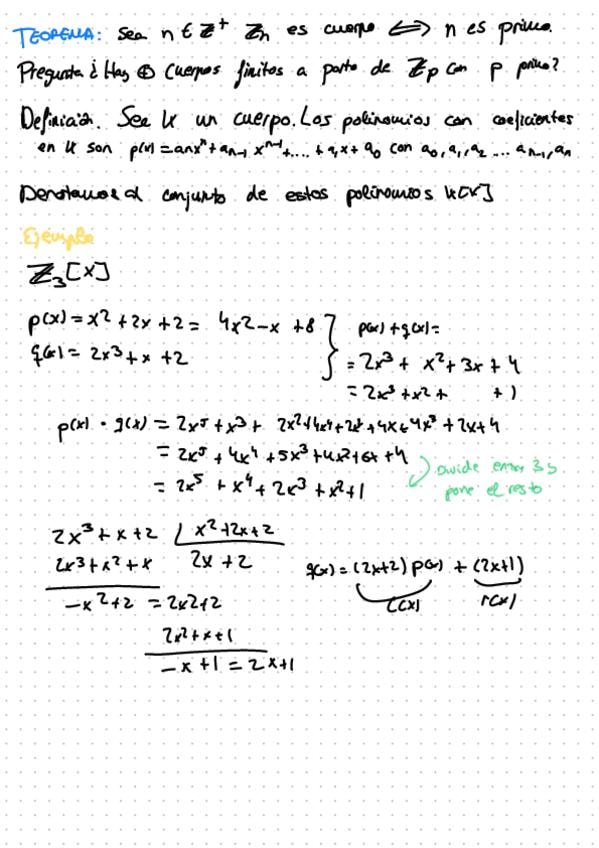 TEOREMA: Sea n ∈ Z⁺ Zn es cuerpo ⟺ n es primo.
Pregunta ¿Hay ⊕ cuerpos finitos a parte de Zp con p primo?
Definición. Sea K un cuerpo. Los polinomios con coeficientes
en K son p(x) = anxⁿ + an-1 xⁿ⁻¹ + .... + a1x + a0 con a0, a1, a2 ... an-1, an
Denotamos al conjunto de estos polinomios K[X]
Ejemplo
Z3[X]
p(x) = x² + 2x + 2 = 4x2 - x + 8
q(x) = 2x³ + x + 2
p(x) + q(x) =
= 2x³ + x² + 3x + 4
= 2x³ + x² + + 1
p(x) · q(x) = 2x⁵ + x³ + 2x² + 4x⁴ + 2x² + 4x + 4x³ + 2x + 4
= 2x⁵ + 4x⁴ + 5x³ + 4x² + 6x + 4
= 2x⁵ + x⁴ + 2x³ + x² + 1
Divide entre 3 y
pone el resto
2x³ + x + 2 | x² + 2x + 2
2x³ + x² + x 2x + 2
-x² + 2 = 2x2 + 2
2x² + x + 1
-x + 1 = 2x + 1
q(x) = (2x+2) p(x) + (2x+1)
c(x) r(x)